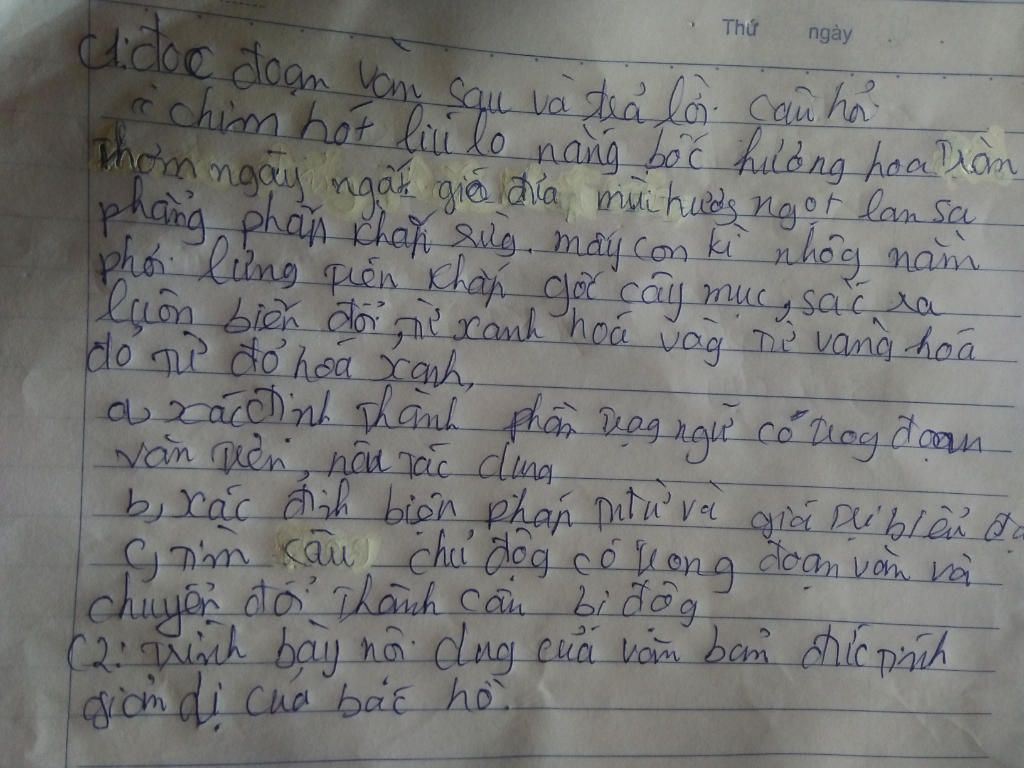 Thứ ngày
C1: đọc đoạn văn sau và trả lời câu hỏi
" chim hót líu lo nắng bốc hương hoa tràm
thơm ngây ngất gió đưa mùi hương ngọt lan xa
phảng phất khắp rừng. mấy con kì nhông nằm
phơi lưng trên khắp gốc cây mục, sắc xa
luôn biến đổi, từ xanh hoá vàng từ vàng hoá
đỏ từ đỏ hoá xanh,
a, xác định thành phần trạng ngữ có trong đoạn
văn trên, nêu tác dụng
b, xác định biện pháp tu từ và giá trị biểu đạ
c, tìm câu chủ động có trong đoạn văn và
chuyển đổi thành câu bị động
C2: trình bày nội dung của văn bản đức tính
giản dị của bác hồ.